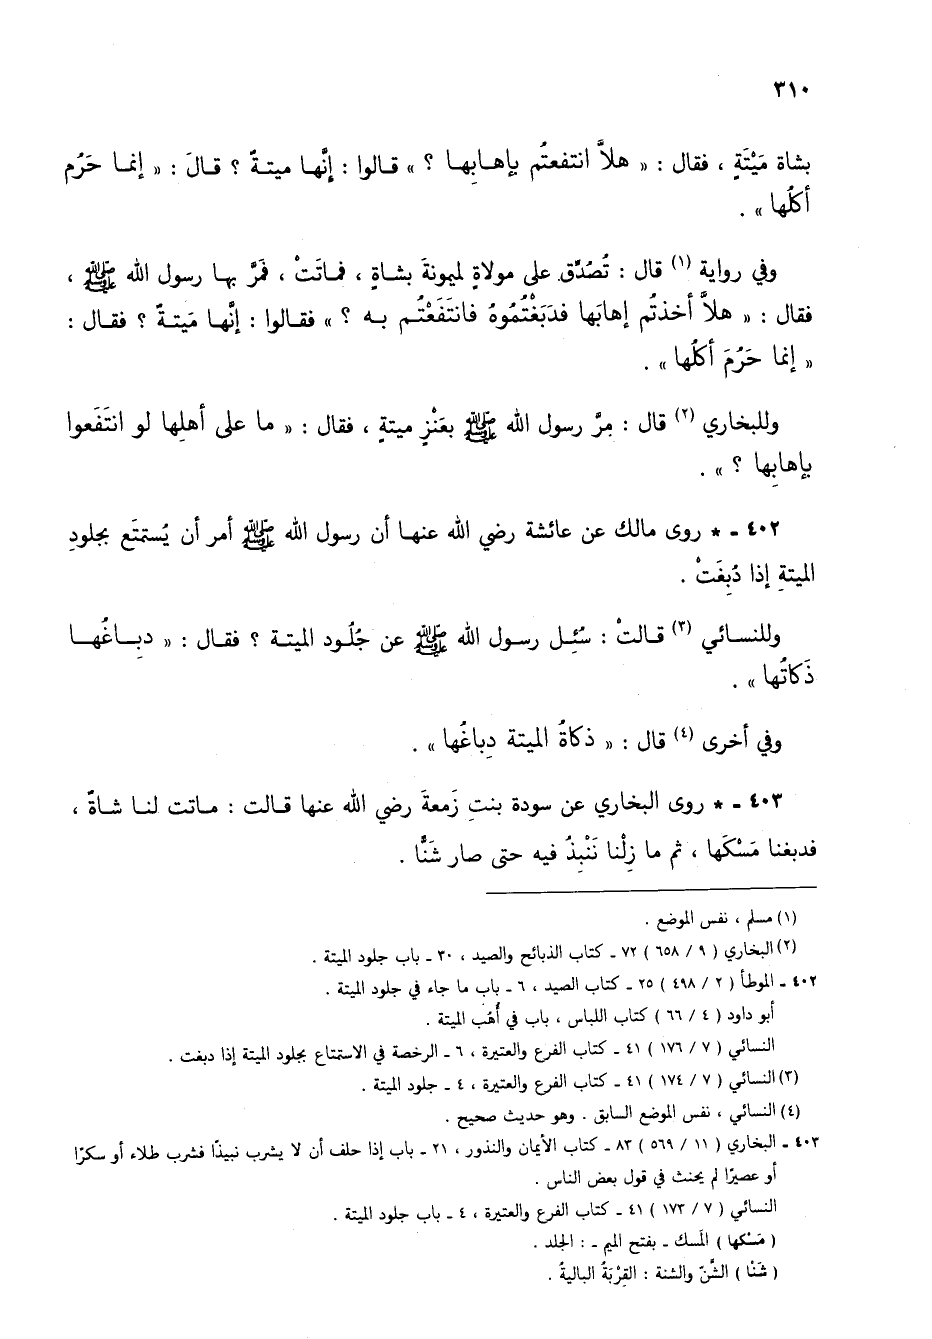 ٣١٠
بشاة مَيْتَةٍ ، فقال : « هلاَّ انتفعتُم بإهابِها ؟ » قالوا : إنَّها ميتةٌ ؟ قالَ : « إنما حَرُم
أكلُها » .
وفي رواية (١) قال : تُصُدِّق على مولاةٍ لميمونةَ بشاةٍ ، فماتَتْ ، فمَرَّ بها رسول الله ﷺ ،
فقال : « هلاَّ أخذتُم إهابَها فدَبَغْتُمُوهُ فانتَفَعْتُم به ؟ » فقالوا : إنَّها مَيتةٌ ؟ فقال :
« إنما حَرُمَ أكلُها » .
وللبخاري (٢) قال : مرَّ رسول الله ﷺ بعَنْزٍ ميتةٍ ، فقال : « ما على أهلِها لو انتَفَعوا
بإهابِها ؟ » .
٤٠٢ ـ * روى مالك عن عائشة رضي الله عنها أن رسول الله ﷺ أمر أن يُستمتَع بجلودِ
الميتةِ إذا دُبِغَتْ .
وللنسائي (٣) قالتْ : سُئِل رسول الله ﷺ عن جُلُود الميتة ؟ فقال : « دِباغُها
ذَكاتُها » .
وفي أخرى (٤) قال : « ذكاةُ الميتة دِباغُها » .
٤٠٣ ـ * روى البخاري عن سودة بنتِ زَمعةَ رضي الله عنها قالت : ماتت لنا شاةٌ ،
فدبغنا مَسْكَها ، ثم ما زِلْنا نَنْبِذُ فيه حتى صار شَنًّا .
(١) مسلم ، نفس الموضع .
(٢) البخاري ( ٩ / ٦٥٨ ) ٧٢ ـ كتاب الذبائح والصيد ، ٣٠ ـ باب جلود الميتة .
٤٠٢ ـ الموطأ ( ٢ / ٤٩٨ ) ٢٥ ـ كتاب الصيد ، ٦ ـ باب ما جاء في جلود الميتة .
أبو داود ( ٤ / ٦٦ ) كتاب اللباس ، باب في أُهُب الميتة .
النسائي ( ٧ / ١٧٦ ) ٤١ ـ كتاب الفرع والعتيرة ، ٦ ـ الرخصة في الاستمتاع بجلود الميتة إذا دبغت .
(٣) النسائي ( ٧ / ١٧٤ ) ٤١ ـ كتاب الفرع والعتيرة ، ٤ ـ جلود الميتة .
(٤) النسائي ، نفس الموضع السابق . وهو حديث صحيح .
٤٠٣ ـ البخاري ( ١١ / ٥٦٩ ) ٨٣ ـ كتاب الأيمان والنذور ، ٢١ ـ باب إذا حلف أن لا يشرب نبيذًا فشرب طلاء أو سكرًا
أو عصيرًا لم يحنث في قول بعض الناس .
النسائي ( ٧ / ١٧٣ ) ٤١ ـ كتاب الفرع والعتيرة ، ٤ ـ باب جلود الميتة .
( مَسْكها ) المَسك ـ بفتح الميم ـ : الجلد .
( شَنًّا ) الشَّنّ والشنة : القِرْبَةُ الباليةُ .